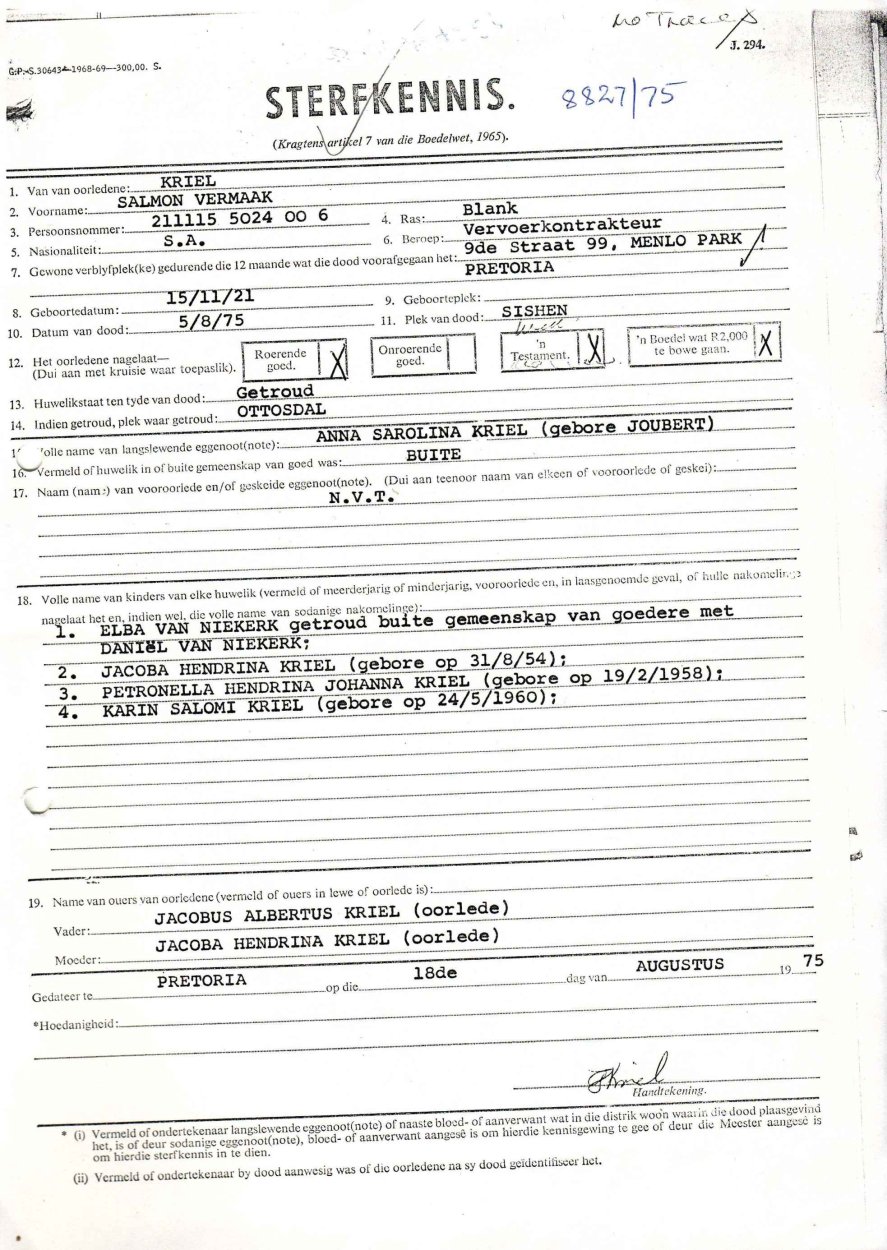 No Traces
J. 294.
G.P.-S.30643—1968-69—300,00. S.
STERFKENNIS.
8827/75
(Kragtens artikel 7 van die Boedelwet, 1965).
1. Van van oorledene: KRIEL
2. Voorname: SALMON VERMAAK
3. Persoonsnommer: 211115 5024 00 6 4. Ras: Blank
5. Nasionaliteit: S.A. 6. Beroep: Vervoerkontrakteur
7. Gewone verblyfplek(ke) gedurende die 12 maande wat die dood voorafgegaan het: 9de Straat 99, MENLO PARK
PRETORIA
8. Geboortedatum: 15/11/21 9. Geboorteplek:
10. Datum van dood: 5/8/75 11. Plek van dood: SISHEN
12. Het oorledene nagelaat— (Dui aan met kruisie waar toepaslik).
Roerende goed. X
Onroerende goed.
'n Testament. X
'n Boedel wat R2,000 te bowe gaan. X
13. Huwelikstaat ten tyde van dood: Getroud
14. Indien getroud, plek waar getroud: OTTOSDAL
olle name van langslewende eggenoot(note): ANNA SAROLINA KRIEL (gebore JOUBERT)
16. Vermeld of huwelik in of buite gemeenskap van goed was: BUITE
17. Naam (name) van vooroorlede en/of geskeide eggenoot(note). (Dui aan teenoor naam van elkeen of vooroorlede of geskei):
N.V.T.
18. Volle name van kinders van elke huwelik (vermeld of meerderjarig of minderjarig, vooroorlede en, in laasgenoemde geval, of hulle nakomelinge
nagelaat het en, indien wel, die volle name van sodanige nakomelinge):
1. ELBA VAN NIEKERK getroud buite gemeenskap van goedere met
DANIëL VAN NIEKERK;
2. JACOBA HENDRINA KRIEL (gebore op 31/8/54);
3. PETRONELLA HENDRINA JOHANNA KRIEL (gebore op 19/2/1958);
4. KARIN SALOMI KRIEL (gebore op 24/5/1960);
19. Name van ouers van oorledene (vermeld of ouers in lewe of oorlede is):
Vader: JACOBUS ALBERTUS KRIEL (oorlede)
Moeder: JACOBA HENDRINA KRIEL (oorlede)
Gedateer te PRETORIA op die 18de dag van AUGUSTUS 19 75
*Hoedanigheid:
Kriel
Handtekening.
* (i) Vermeld of ondertekenaar langslewende eggenoot(note) of naaste bloed- of aanverwant wat in die distrik woon waarin die dood plaasgevind
het, is of deur sodanige eggenoot(note), bloed- of aanverwant aangesê is om hierdie kennisgewing te gee of deur die Meester aangesê is
om hierdie sterfkennis in te dien.
(ii) Vermeld of ondertekenaar by dood aanwesig was of die oorledene na sy dood geïdentifiseer het.